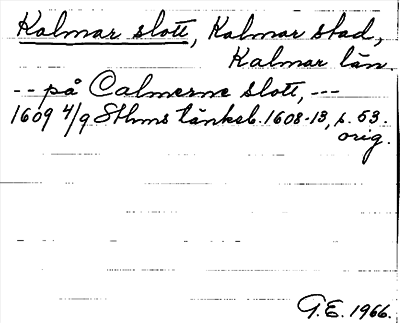 Kalmar slott, Kalmar stad,
Kalmar län.
-- på Calmerne slott, ---
1609 4/9 Sthms tänkeb. 1608-13, s. 53.
orig.
G.E. 1966.